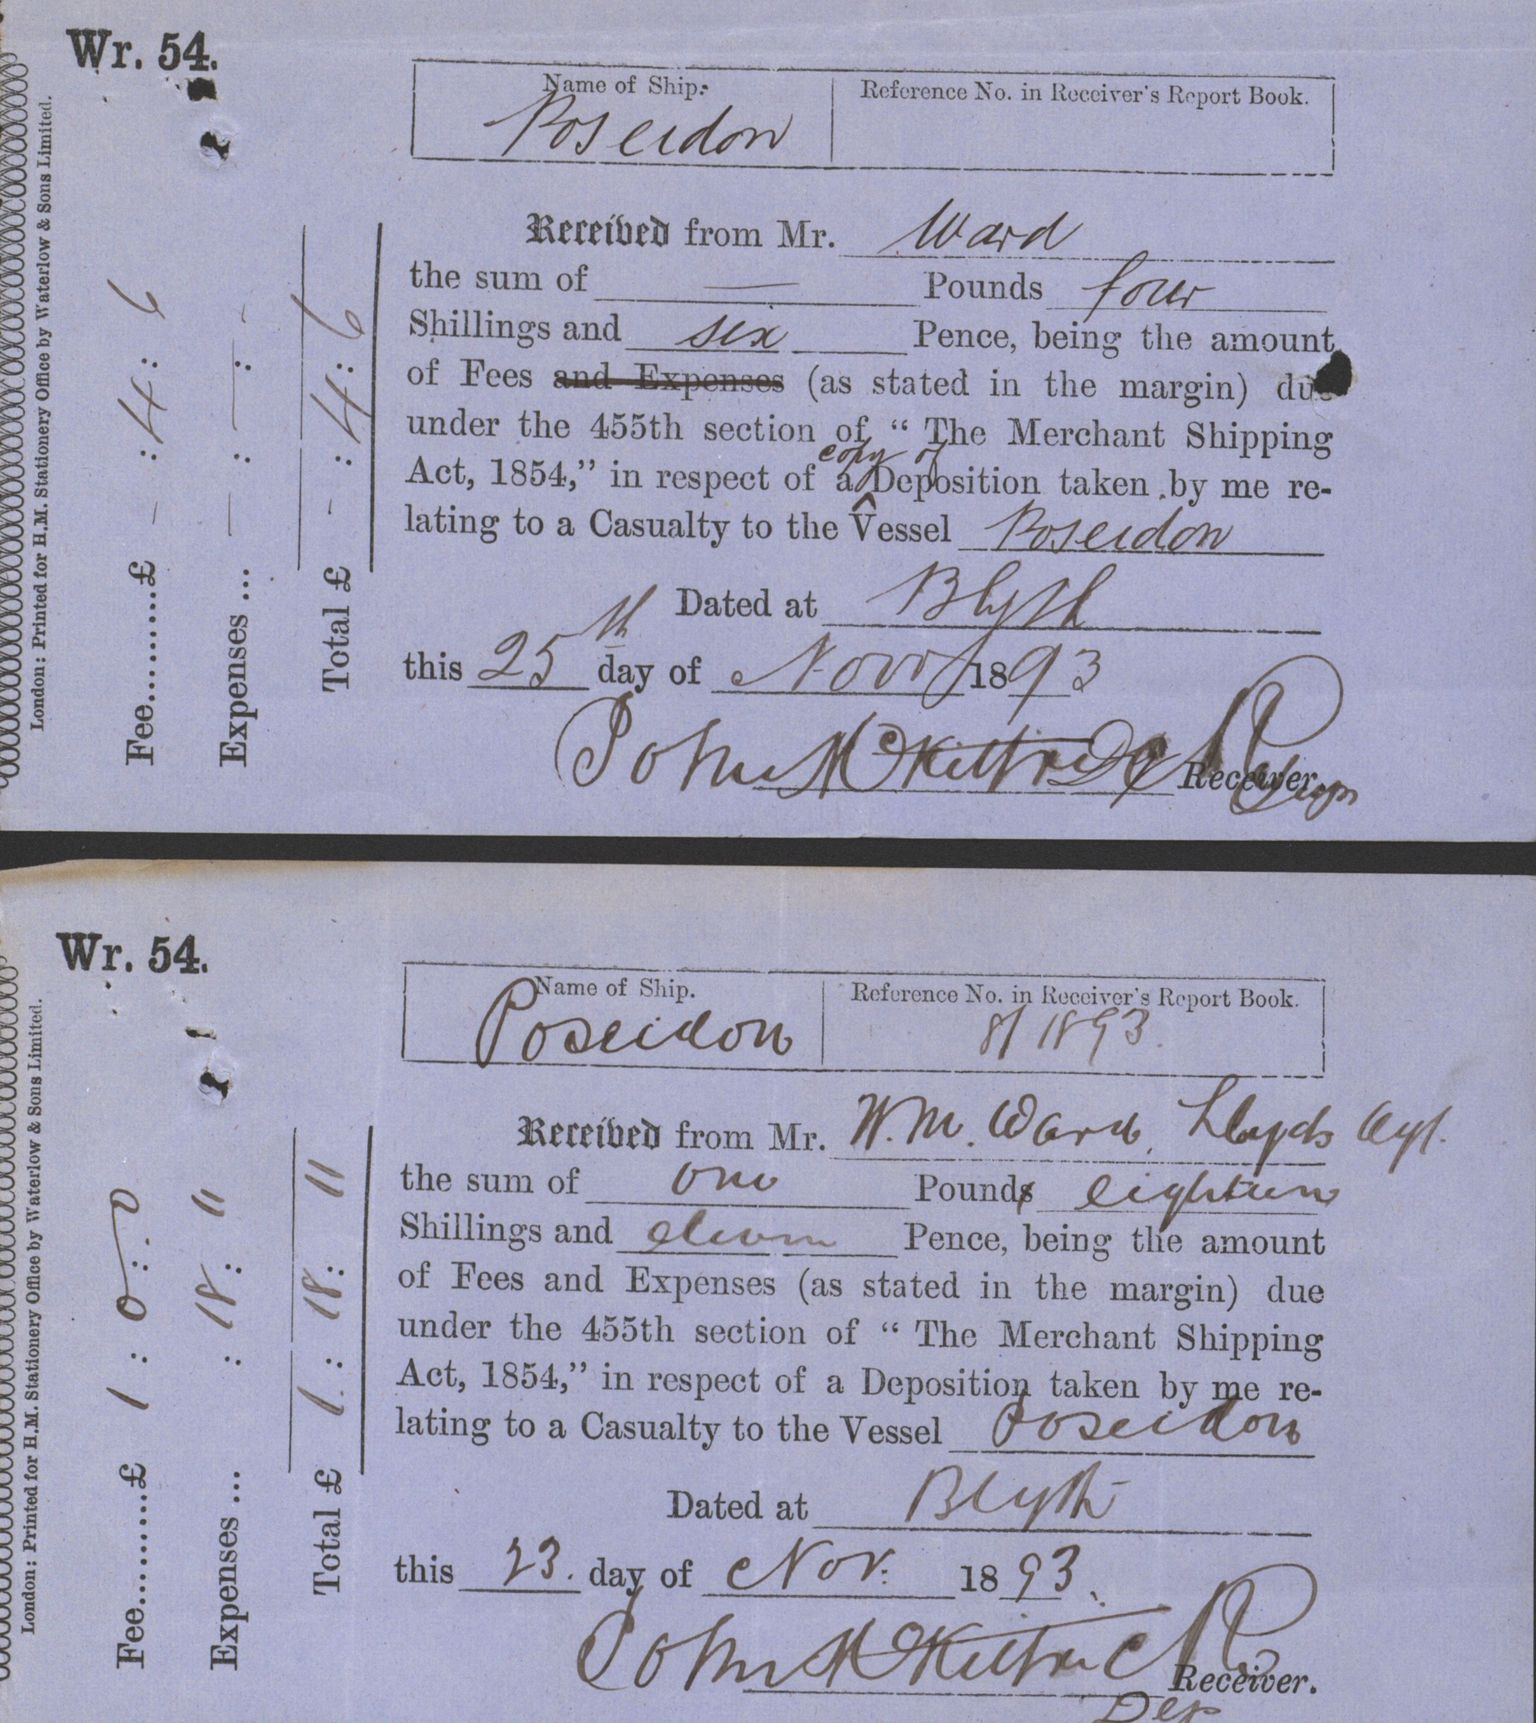 Wr. 54.
London: Printed for H.M. Stationery Office by Waterlow & Sons Limited.
Fee.........£ - : 4 : 6
Expenses ... — : — : -
Total £ - : 4 : 6
Name of Ship.
Reference No. in Receiver's Report Book.
Poseidon
Received from Mr. Ward
the sum of — Pounds four
Shillings and six Pence, being the amount
of Fees and Expenses (as stated in the margin) due
under the 455th section of "The Merchant Shipping
copy of
Act, 1854," in respect of a Deposition taken by me re-
lating to a Casualty to the Vessel Poseidon
Dated at Blyth
this 25th day of Novr 1893
John McKittrick
Receiver.
Wr. 54.
London: Printed for H.M. Stationery Office by Waterlow & Sons Limited.
Fee.........£ 1 : 0 : 0
Expenses ... : 18 : 11
Total £ 1 : 18 : 11
Name of Ship.
Reference No. in Receiver's Report Book.
Poseidon
8/1893.
Received from Mr. W. M. Ward, Lloyds Agt.
the sum of one Pounds eighteen
Shillings and eleven Pence, being the amount
of Fees and Expenses (as stated in the margin) due
under the 455th section of "The Merchant Shipping
Act, 1854," in respect of a Deposition taken by me re-
lating to a Casualty to the Vessel Poseidon
Dated at Blyth
this 23. day of Nov. 1893.
John McKittrick
Receiver.
Dep